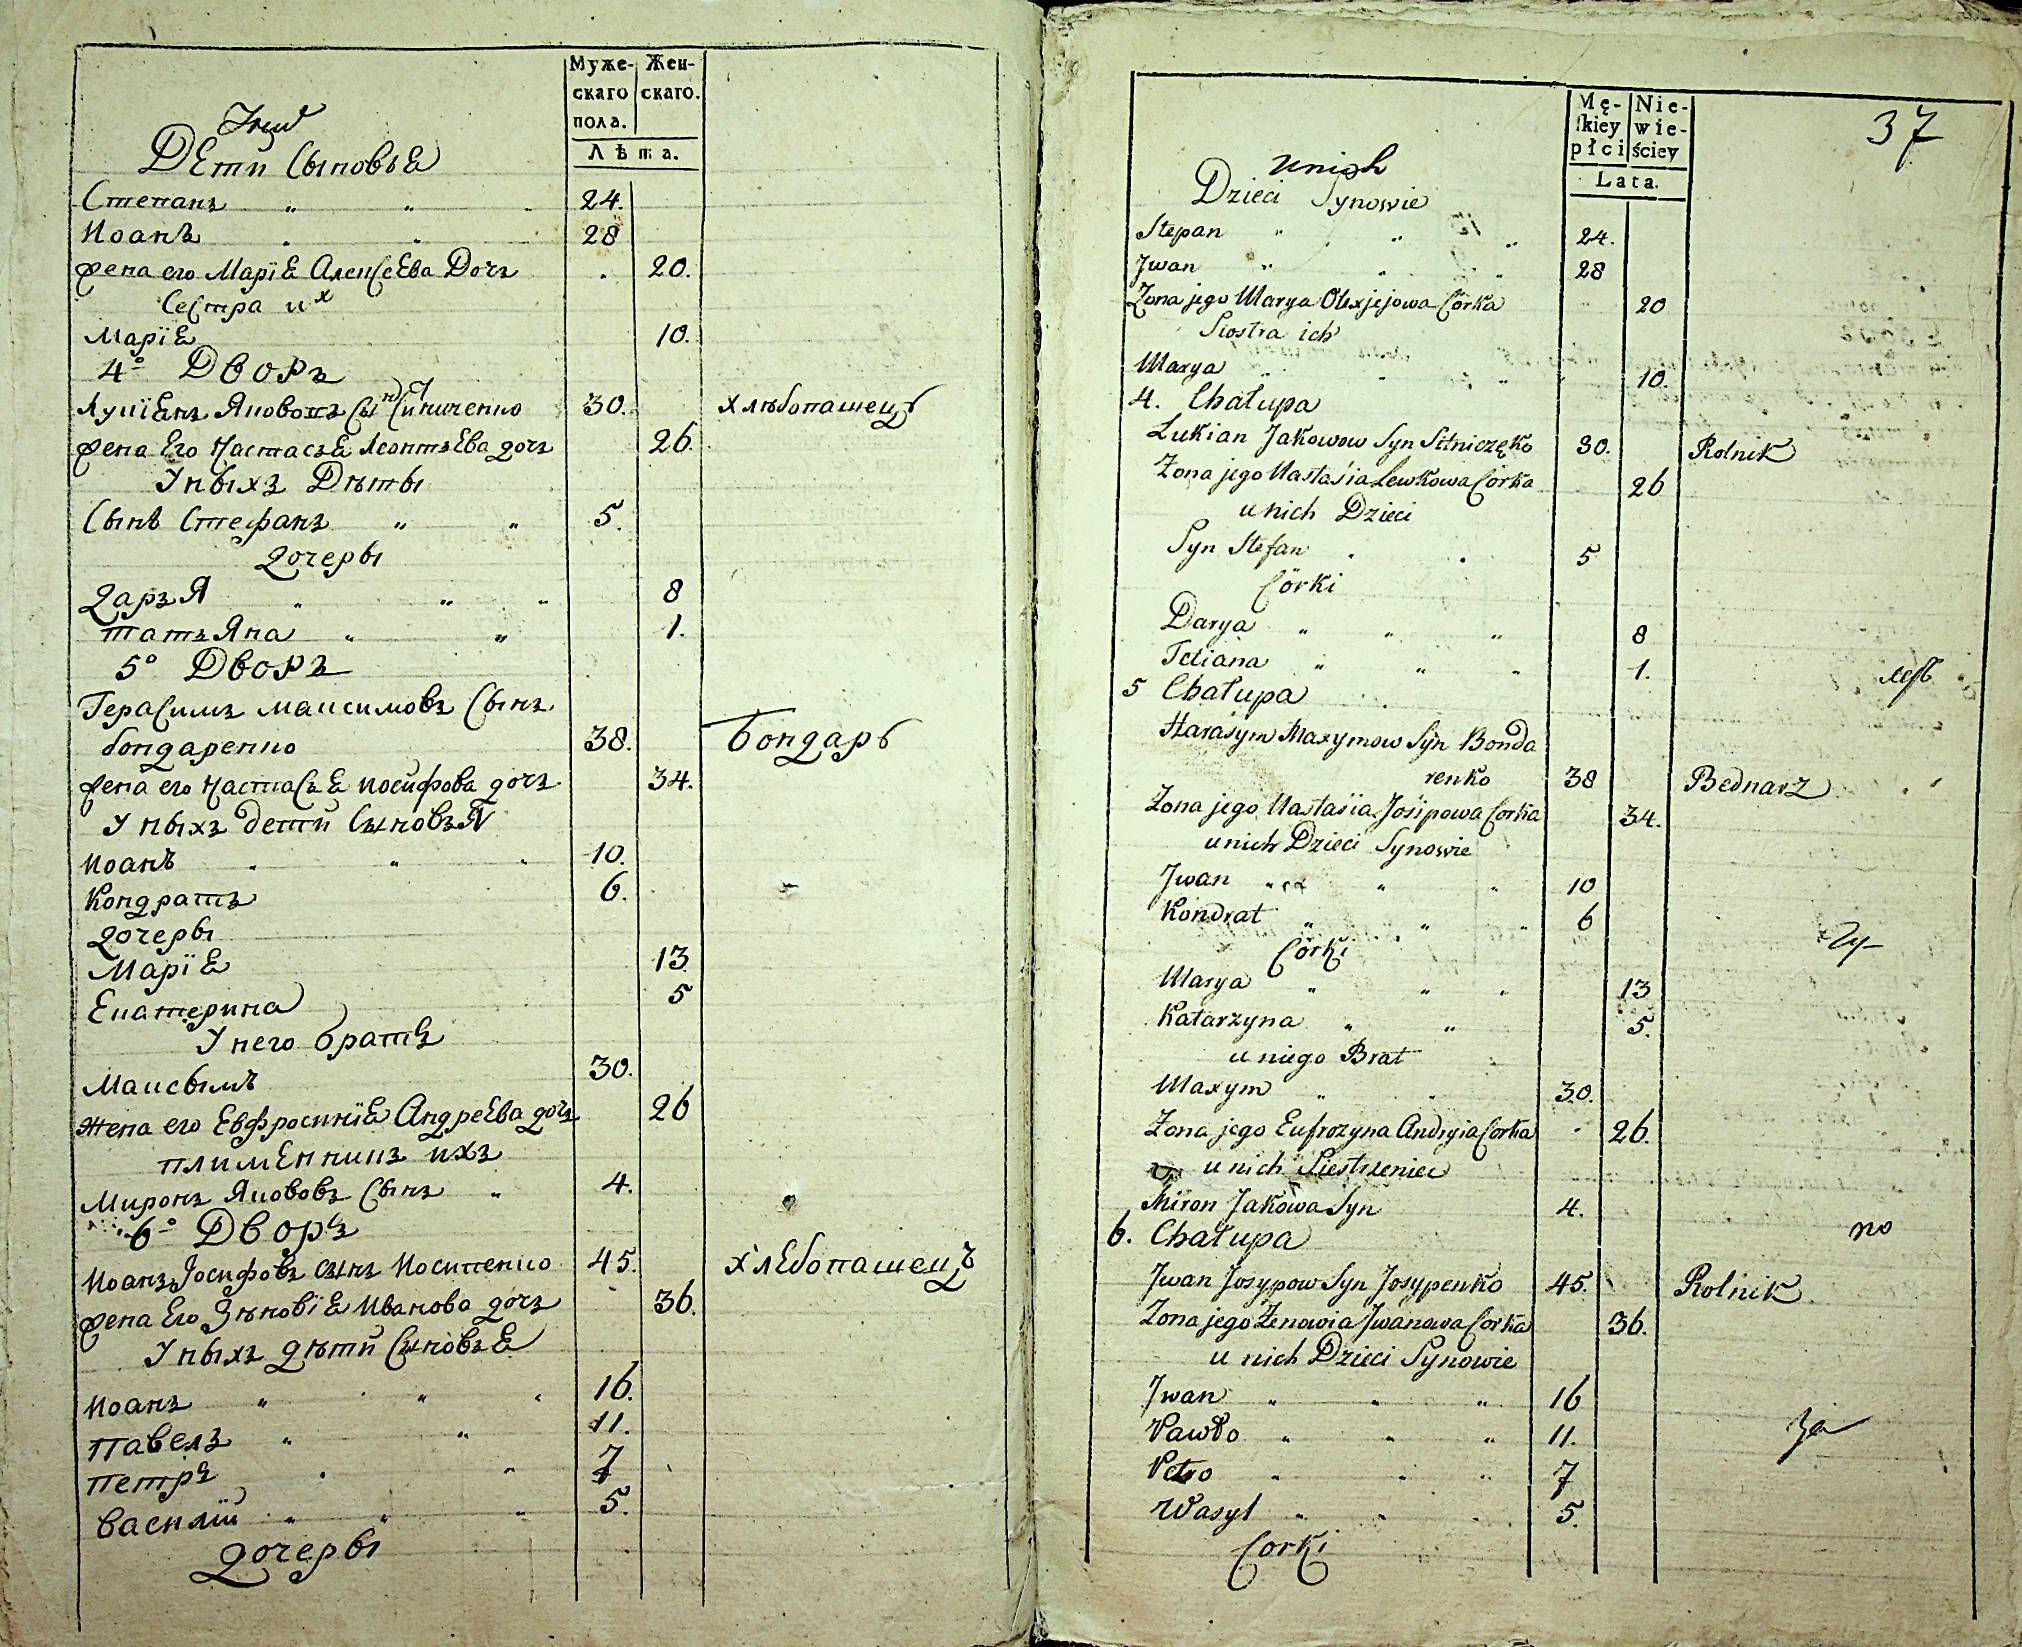 Муже-
скаго
пола.
Жен-
скаго.
Лѣта.
Дети Сыновье
Степанъ " " 24.
Иоанъ 28
жена его Маріе Алексеева Дочъ 20.
Сестра их
Маріе 10.
4° Дворъ
Лукіенъ Якововъ Сын Ситниченко 30. хлѣбопашецъ
жена Его Настасье Леонтьева дочъ 26.
У ныхъ Дѣты
Сынъ Стефанъ " " 5.
Дочеры
Дарья " " " 8
татьяна " " 1.
5° Дворъ
Герасимъ максимовъ Сынъ
бондаренко 38. Бондарь
жена его Настасье иосифова дочъ 34.
У ныхъ дети Сыновья
иоанъ " 10.
Кондратъ 6.
Дочеры
Маріе 13
Екатерина 5
У него братъ
Максымъ 30.
жена его Евфросиніе Андреева дочъ 26
племенникъ ихъ
Миронъ Якововъ Сынъ " 4.
6° Дворъ
иоанъ Иосифовъ сынъ иосипенко 45. хлебопашецъ
жена Его Зѣновіе Иванова дочъ 36.
У ныхъ дѣти Сыновье
иоанъ " " 16.
павелъ " " 11.
петръ " 7
василій " " " 5.
Дочеры
Mę-
ſkiey
płci
Nie-
wie-
ściey
Lata.
37
u nich
Dzieci Synowie
Stepan " " " 24.
Jwan " " 28
Żona jego Marya Olexjejowa Córka 20
Siostra ich
Marya " " 10.
4. Chałupa
Lukian Jakowow Syn Sitniczęko 30. Rolnik
Żona jego Nastasia Lewkowa Córka 26
u nich Dzieci
Syn Stefan 5
Córki
Darya " " " 8
Tetiana " " " 1.
5 Chałupa
Harasym Maxymow Syn Bonda
renko 38 Bednarz
Żona jego Nastasiia Josipowa Corka 34.
u nich Dzieci Synowie
Jwan " " " 10
Kondrat " " " 6
Córki
Marya " " " 13
Katarzyna " " 5.
u niego Brat
Maxym " 30.
Żona jego Eufrozyna Andryia Corka 26.
u nich Siestrzeniec
Miron Jakowa Syn 4.
по
6. Chałupa
Jwan Josypow Syn Josypenko 45. Rolnik
Żona jego Zenowia Jwanowa Corka 36.
u nich Dzieci Synowie
Jwan " " " 16
Pawło " " " 11.
за
Petro " " " 7
Wasyl " " 5.
Corki